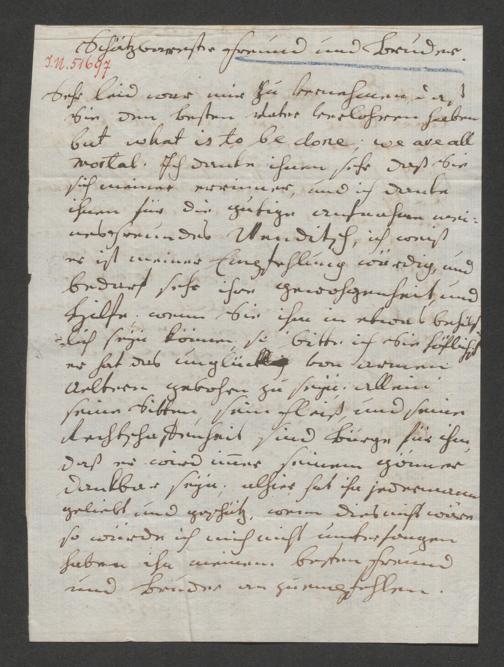 Schätzwerrester Freund und Bruder.
I.N. 51697
Sehr leid war mir zu vernehmen daß
Sie den besten Vater verlohren haben
but what is to be done, we are all
mortal. Ich danke ihnen sehr daß Sie
sich meiner errinner, und ich danke
ihnen für die gütige aufnahme mei-
nes freundes Wenditsch, ich weiß
er ist meiner Empfehlung würdig, und
bedarf sehr ihre gewohgenheit und
Hilfe. wenn Sie ihm in etwas behülf-
lich seyn können, so bitte ich Sie höflichst
er hat das unglück von armen
Aeltern gebohren zu seyn. allein
seine Sitten sein fleiß und seine
Rechtschaffenheit sind bürge für ihn,
daß er wird immer seinem gönner
dankbar seyn; alhier hat ihn jedermann
geliebt und geschätz, wenn dies nicht wäre
so würde ich mich nicht unterfangen
haben ihn meinem besten freund
und bruder anzuempfehlen.